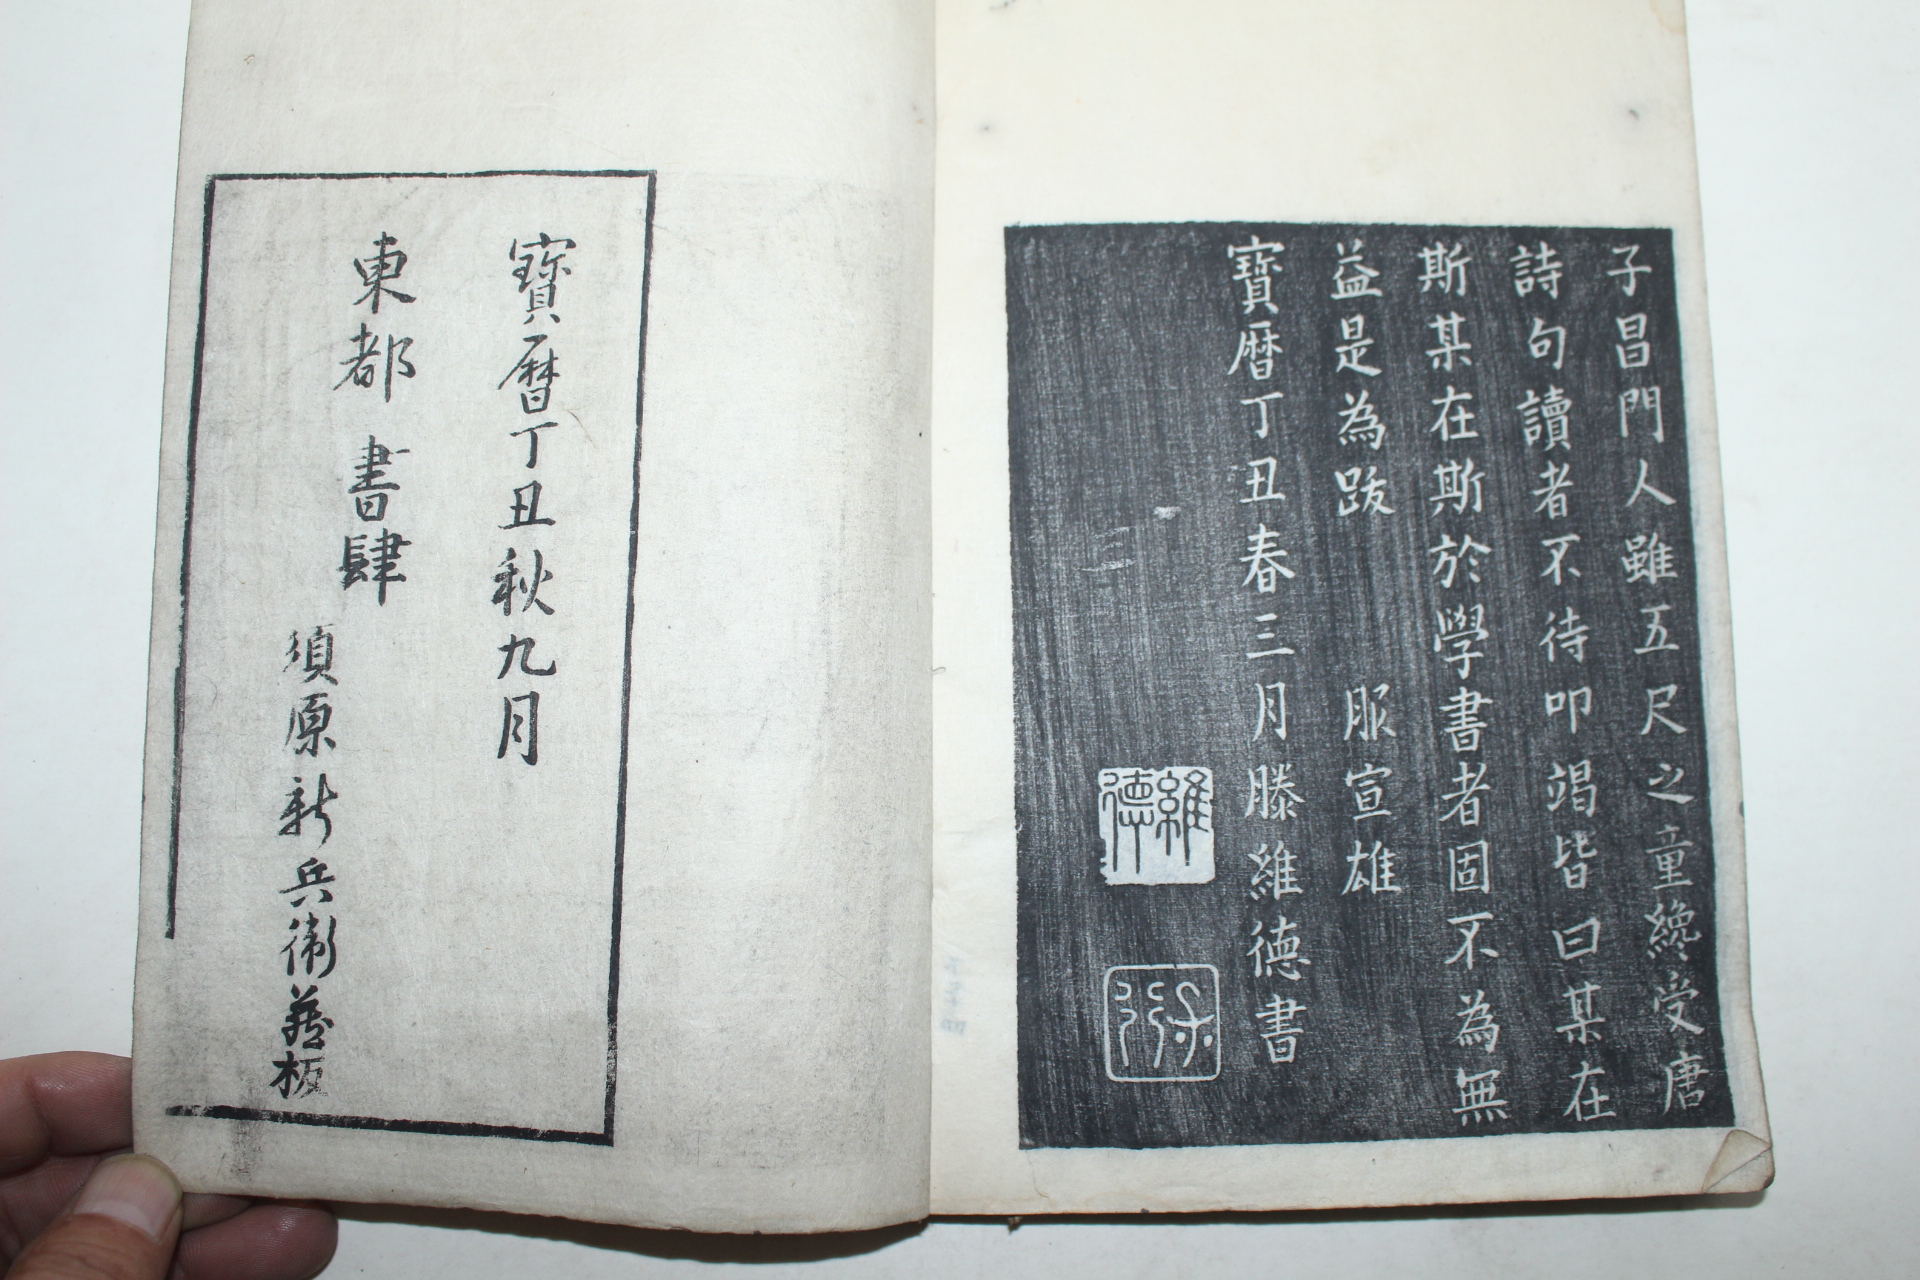 子昌門人雖五尺之童纔受唐
詩句讀者不待叩竭皆曰某在
斯某在斯於學書者固不為無
益是為跋　　服宣雄
寶暦丁丑春三月滕維德書
維德
寶暦丁丑秋九月
東都書肆
須原新兵衛藏板